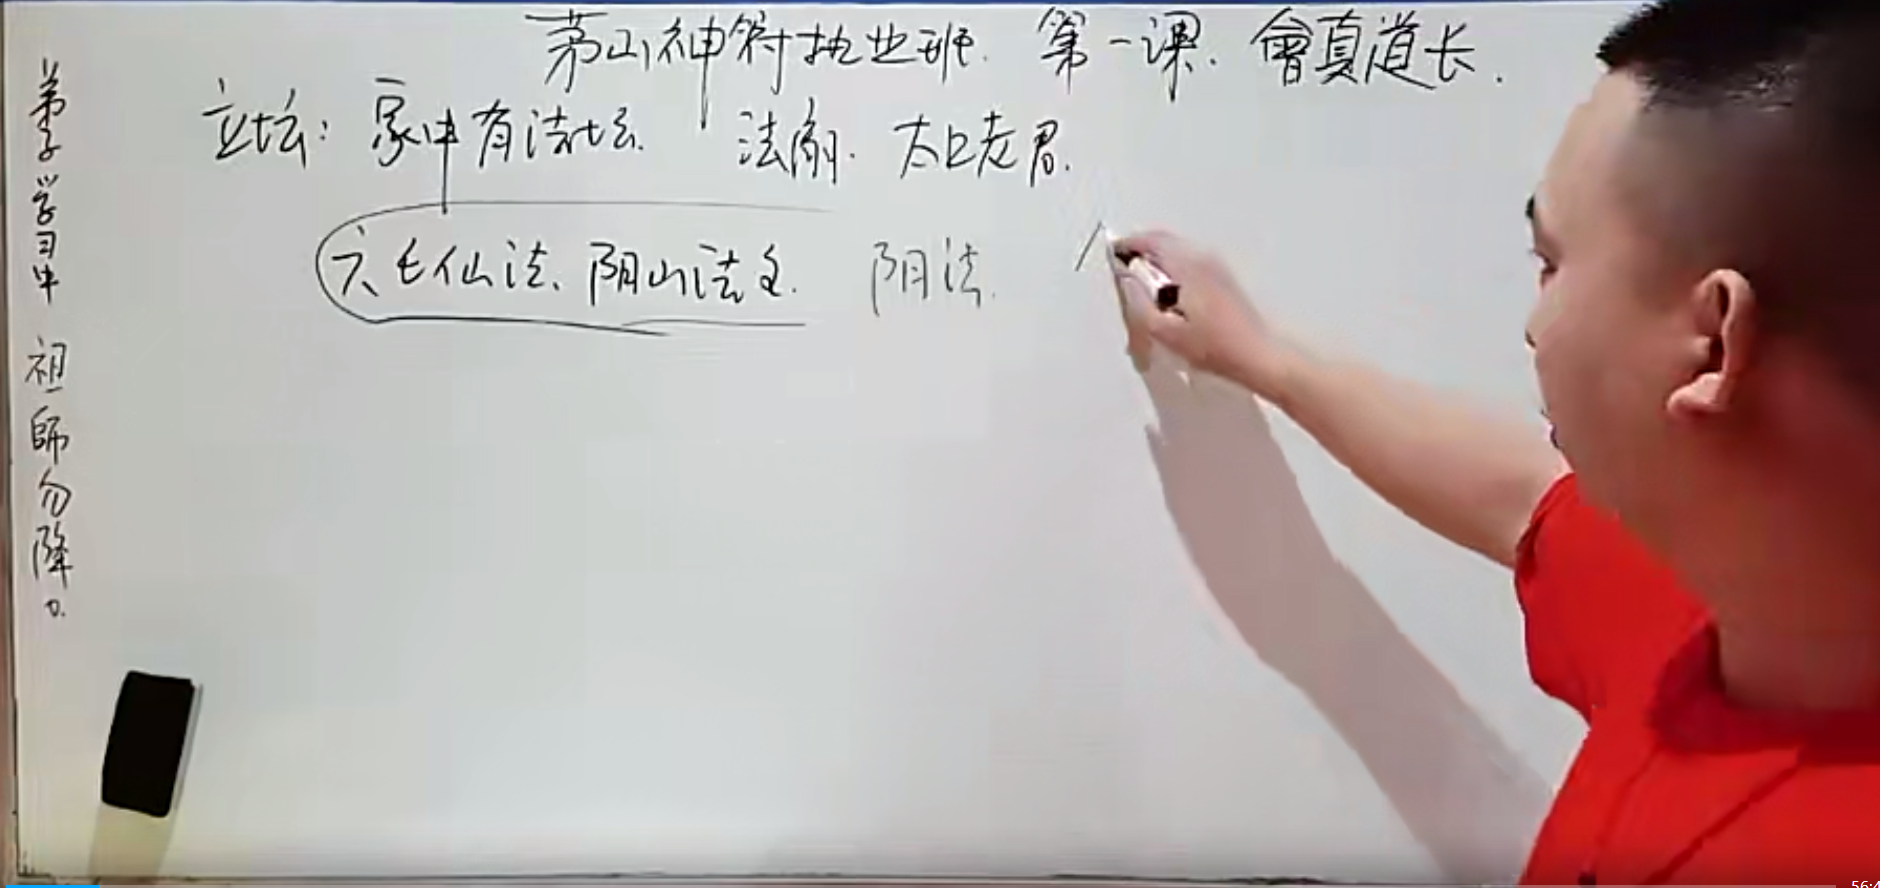 茅山神符执业班. 第一课. 會真道长.
立坛: 家中有法坛. 法脉. 太上老君.
六壬仙法、阴山法主. 阴法.
弟子学习中 祖師勿降。
56:4